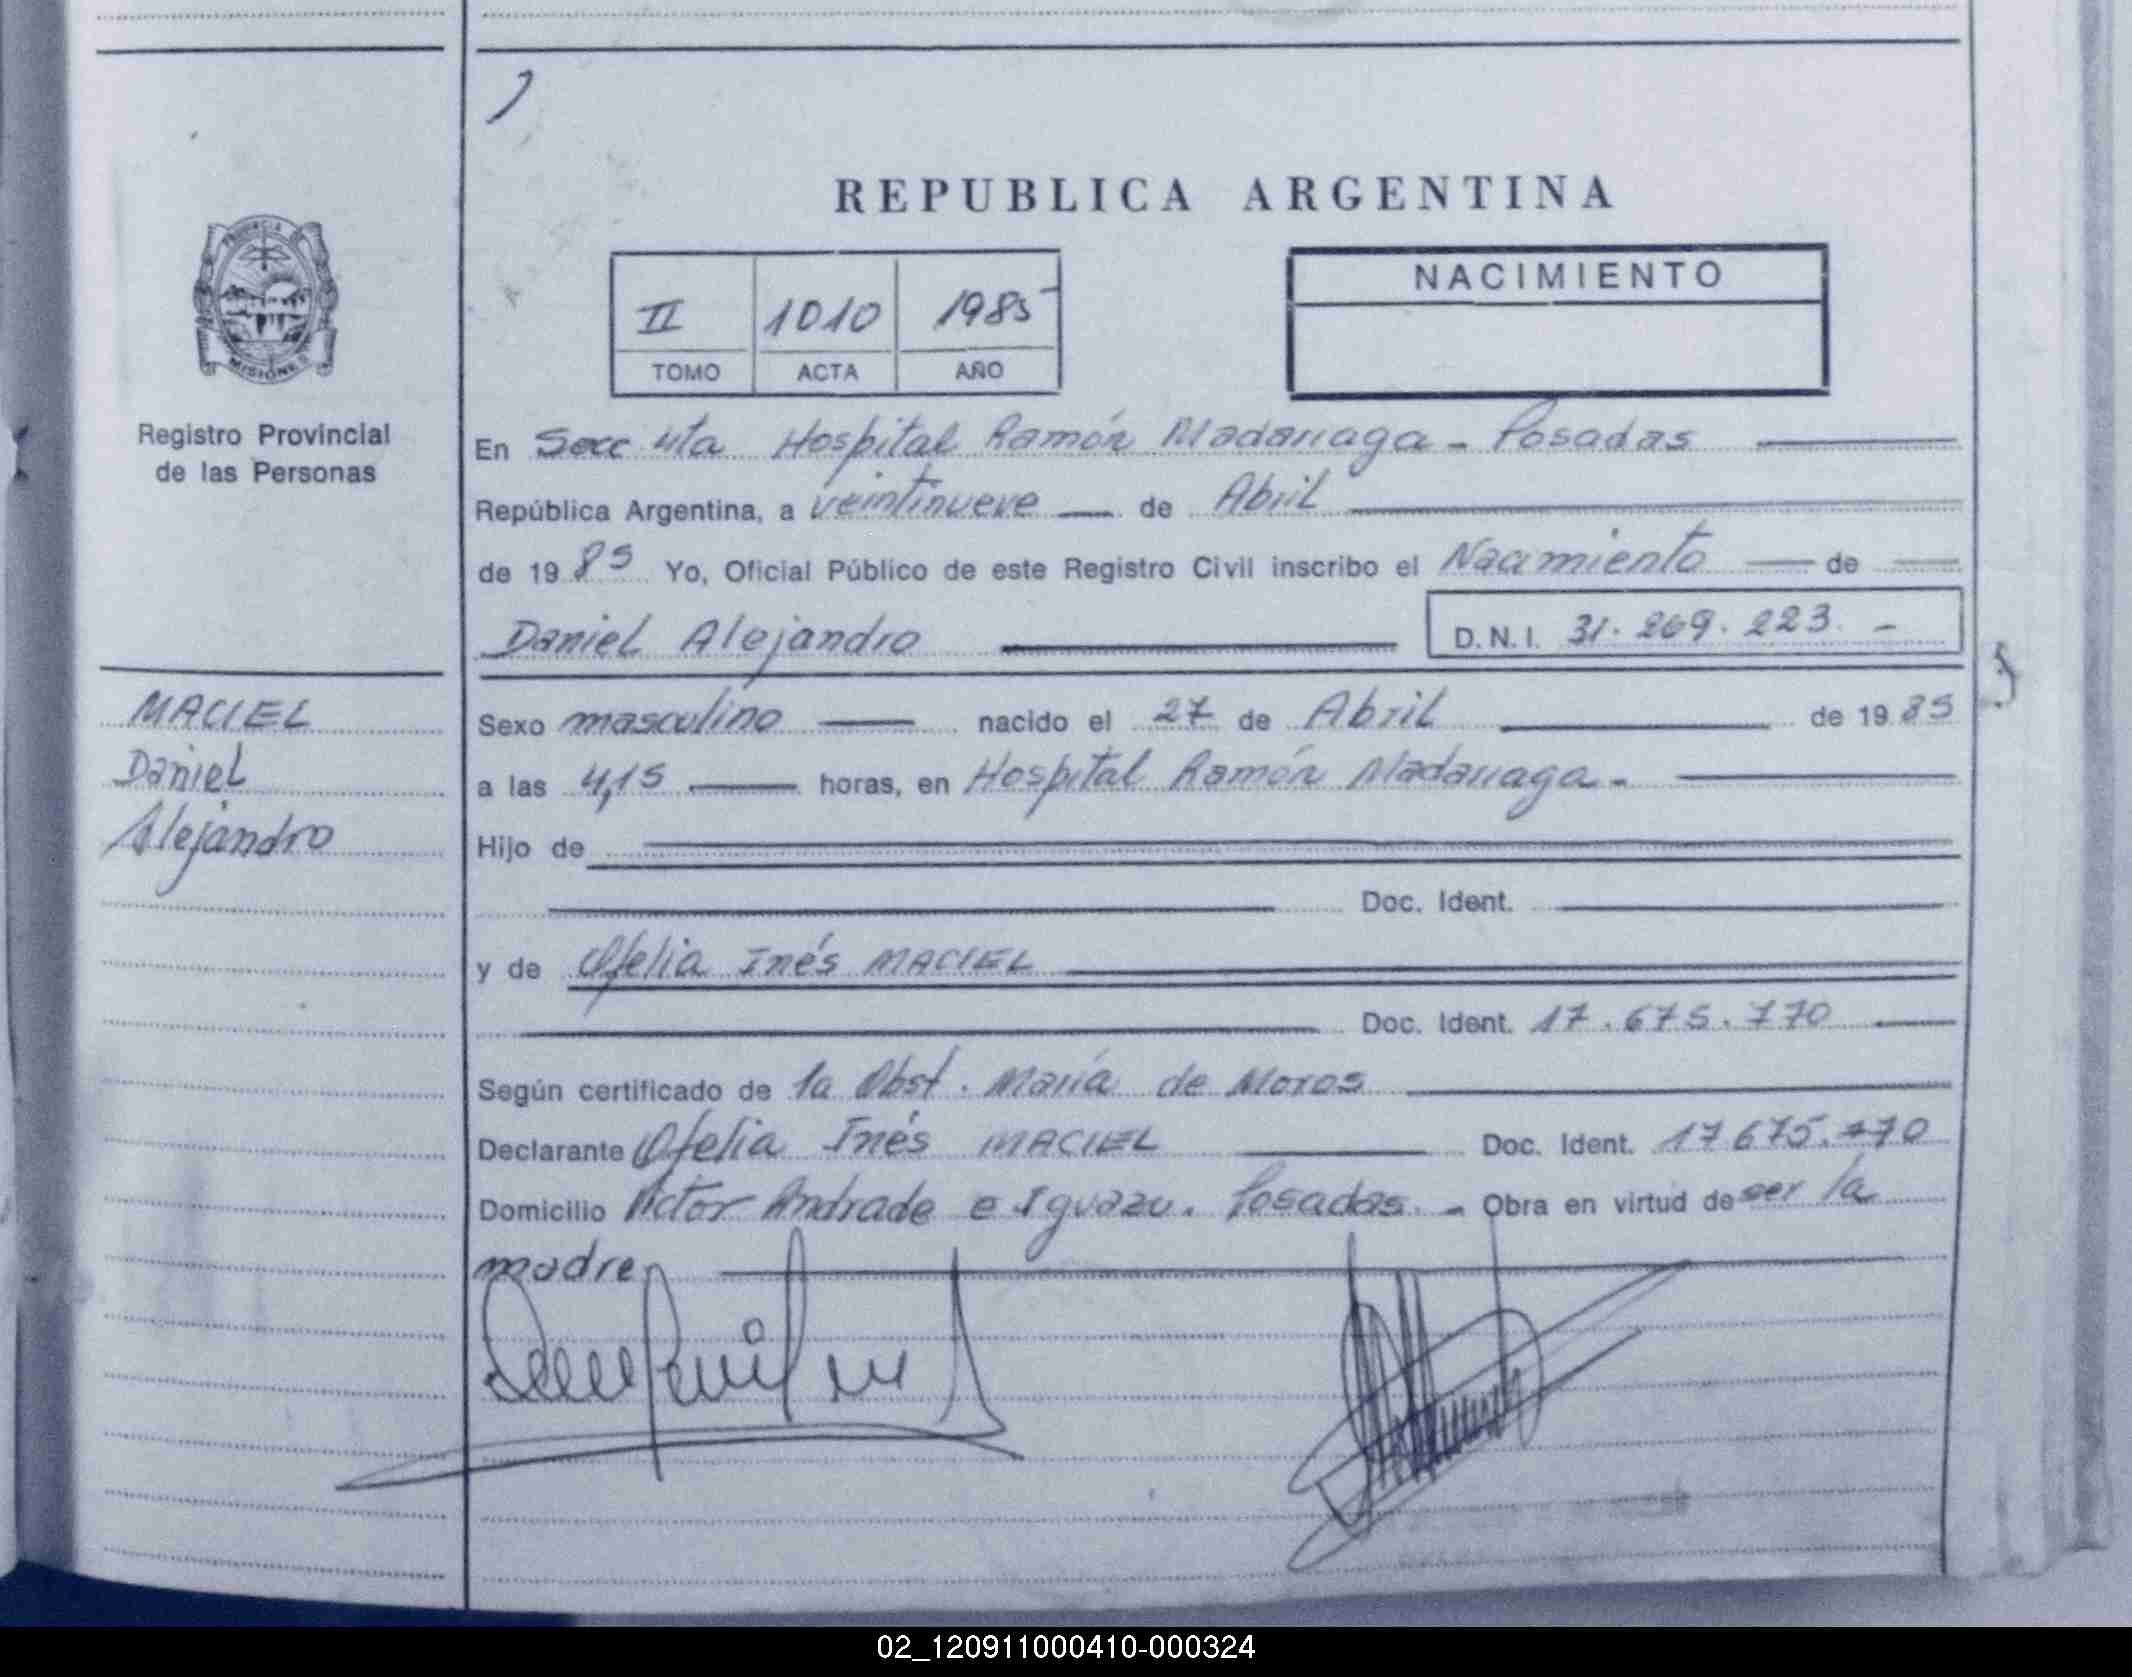 REPUBLICA ARGENTINA
II 1010 1985
TOMO ACTA AÑO
NACIMIENTO
PROVINCIA DE
MISIONES
Registro Provincial
de las Personas
En Secc 4ta Hospital Ramón Madariaga - Posadas
República Argentina, a veintinueve de Abril
de 19 85 Yo, Oficial Público de este Registro Civil inscribo el Nacimiento de
Daniel Alejandro D.N.I. 31.269.223. -
MACIEL
Daniel
Alejandro
Sexo masculino nacido el 27 de Abril de 19 85
a las 4,15 horas, en Hospital Ramón Madariaga -
Hijo de
Doc. Ident.
y de Ofelia Inés MACIEL
Doc. Ident. 17.675.770
Según certificado de la Obst. María de Moros
Declarante Ofelia Inés MACIEL Doc. Ident. 17675.770
Domicilio Victor Andrade e Iguazu. Posadas. - Obra en virtud de ser la
madre
02_120911000410-000324